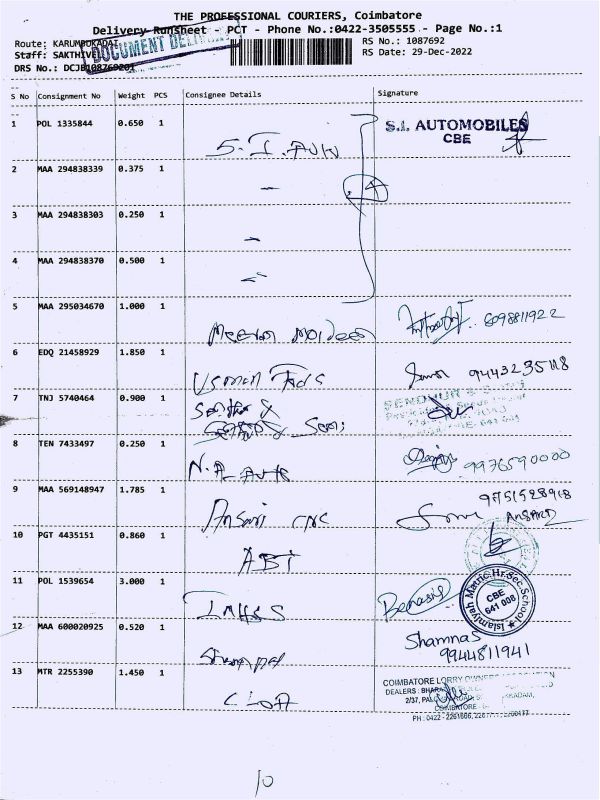 THE PROFESSIONAL COURIERS, Coimbatore
Delivery Runsheet - PCT - Phone No.:0422-3505555 - Page No.:1
Route: KARUMBUKADAI RS No.: 1087692
Staff: SAKTHIVEL RS Date: 29-Dec-2022
DRS No.: DCJB108769201
DOCUMENT
S No Consignment No Weight PCS Consignee Details Signature
1 POL 1335844 0.650 1 S.I. Auto S.I. AUTOMOBILES
CBE
2 MAA 294838339 0.375 1
3 MAA 294838303 0.250 1
4 MAA 294838370 0.500 1
5 MAA 295034670 1.000 1 Meeran Moideen 8098811922
6 EDQ 21458929 1.850 1 Usman 9443235118
7 TNJ 5740464 0.900 1
8 TEN 7433497 0.250 1 N.A. Auto 9976590000
9 MAA 569148947 1.785 1 Ansari CNC 9751528918
ANSARI
10 PGT 4435151 0.860 1 ABT
11 POL 1539654 3.000 1 IMHSS Benasir
Islamiyah Matric.Hr.Sec.School
CBE
641 008
12 MAA 600020925 0.520 1 Shamnas
9944811941
13 MTR 2255390 1.450 1 CLOA COIMBATORE LORRY OWNERS
DEALERS :
2/37,
COIMBATORE
PH : 0422 -
10